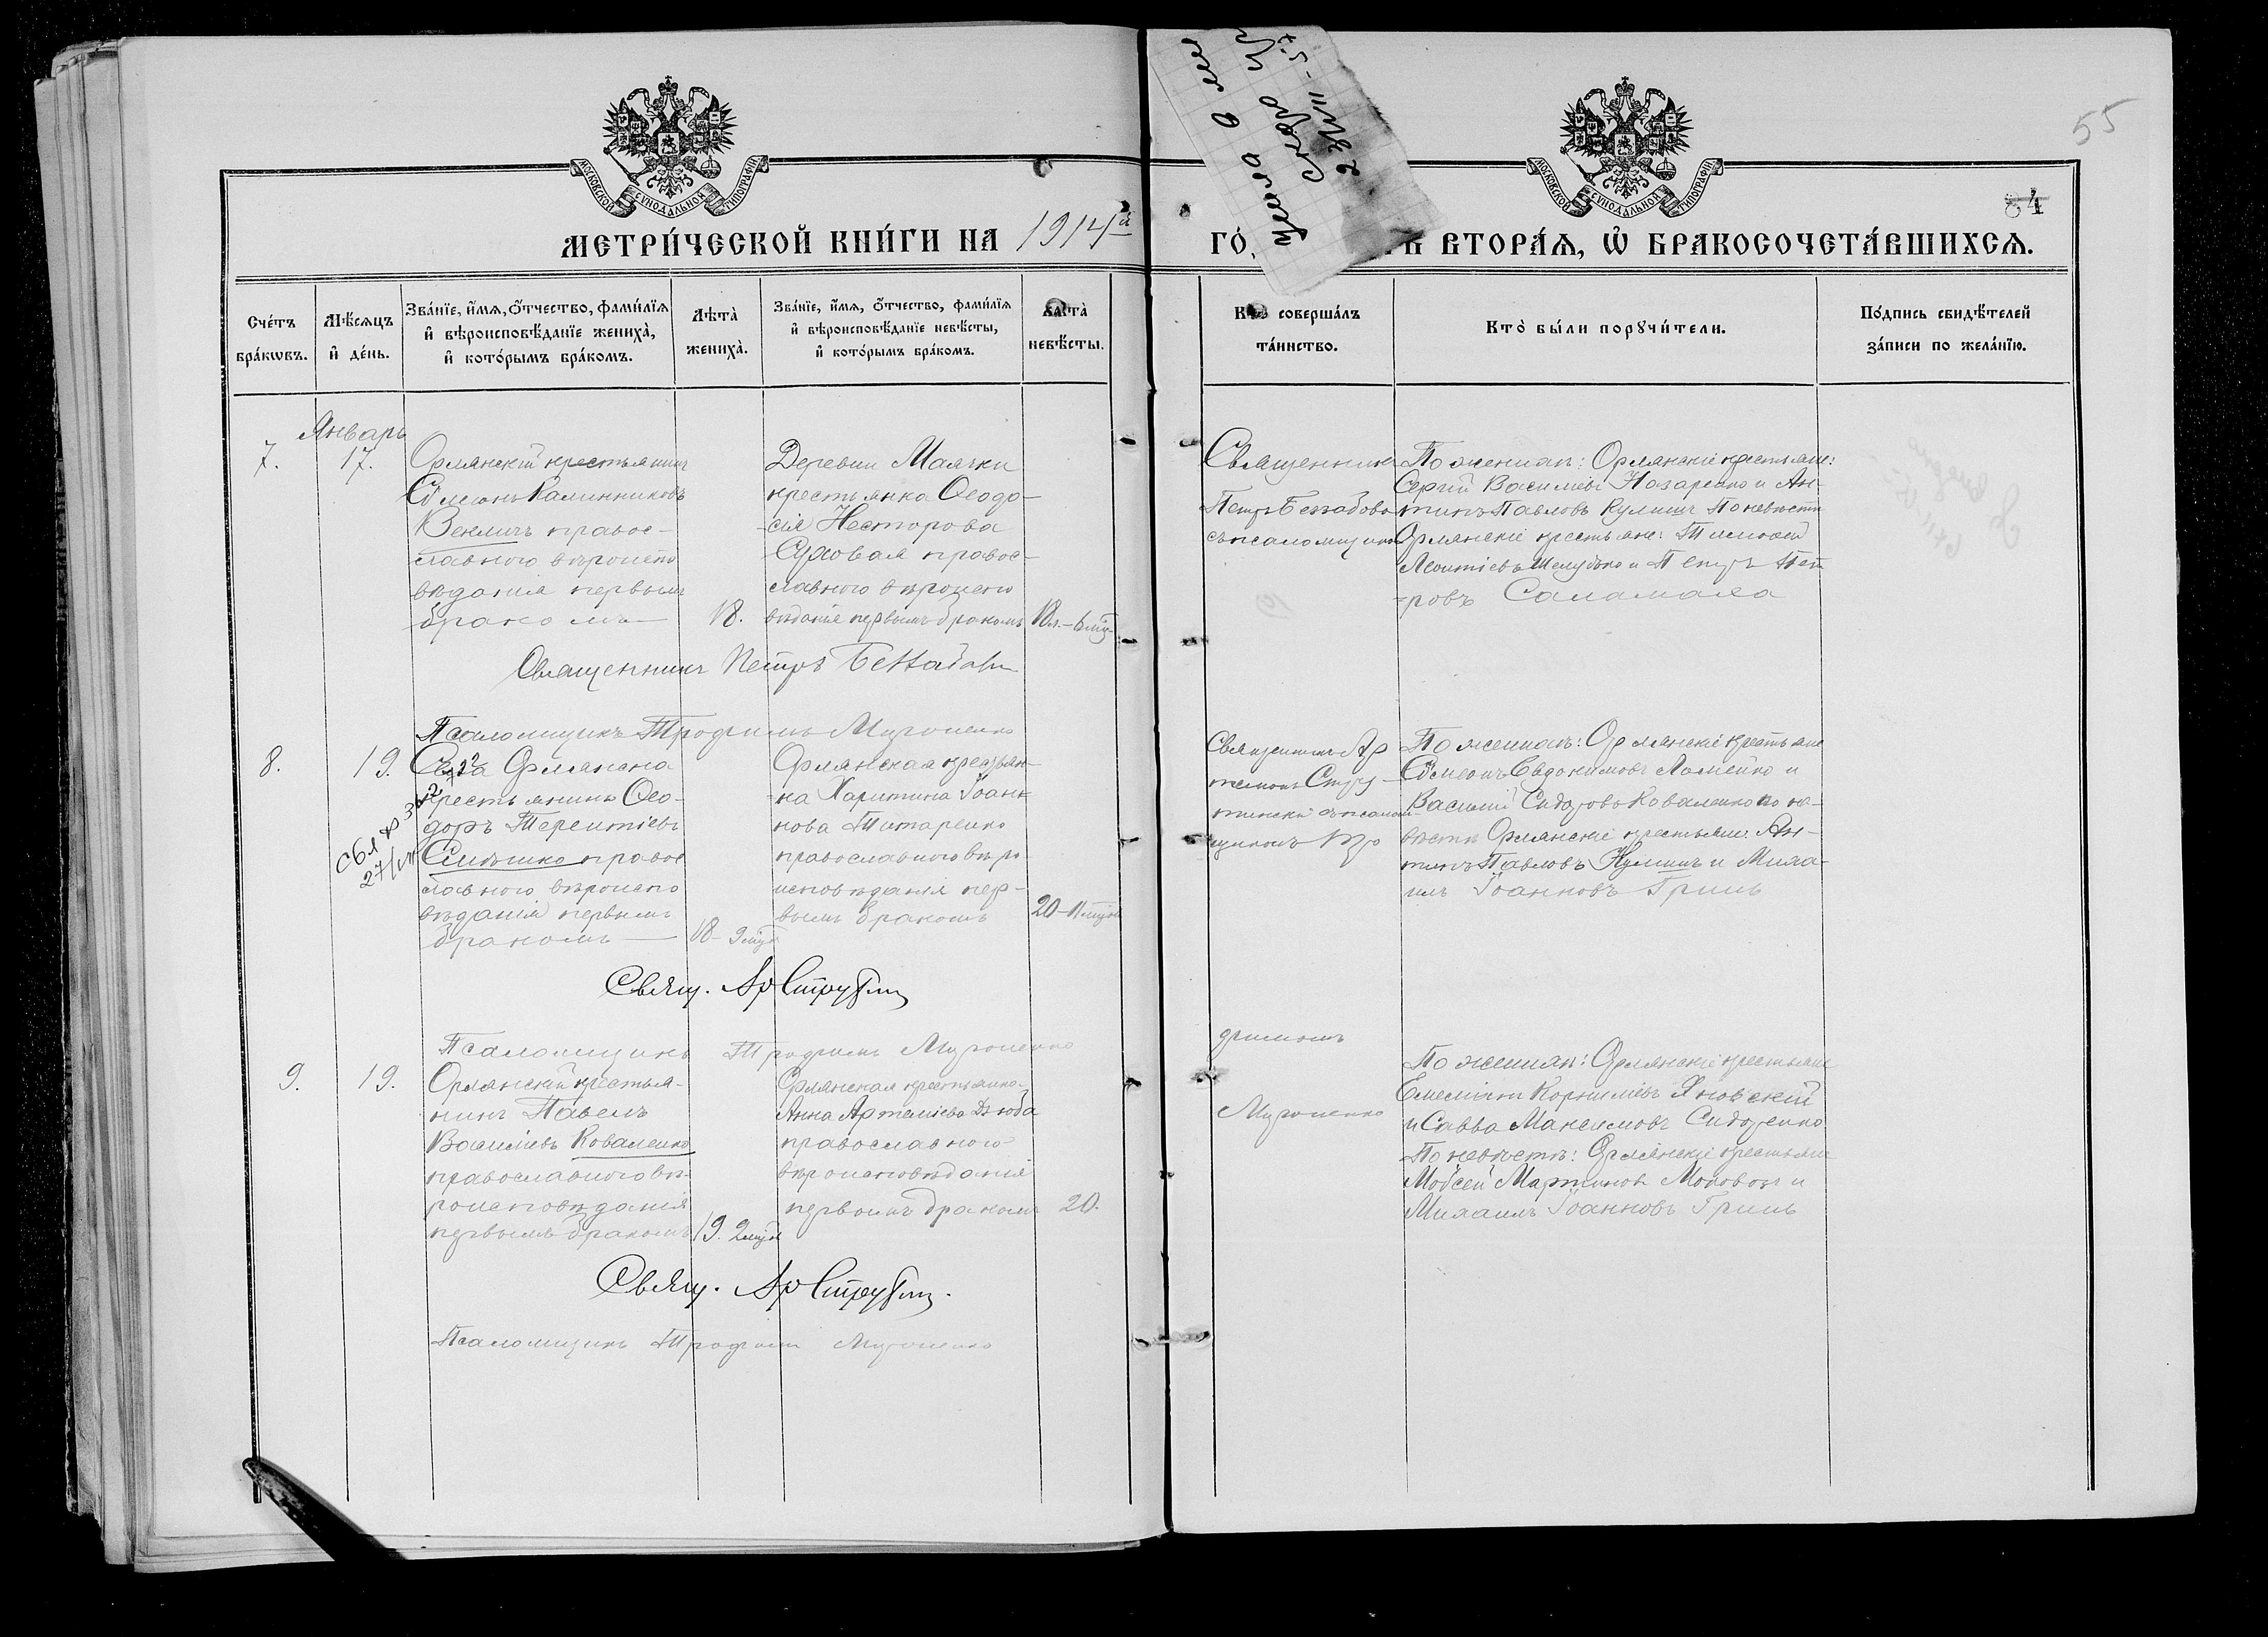 55
84
МОСКОВСКОЙ СѴНОДАЛЬНОЙ ТИПОГРАФІИ
МОСКОВСКОЙ СѴНОДАЛЬНОЙ ТИПОГРАФІИ
МЕТРИ́ЧЕСКОЙ КНИ́ГИ НА 1914й
ГО́ ВТОРА́Я, Ѡ҆ БРАКОСОЧЕТА́ВШИХСЯ.
Сче́тъ бра́кѡвъ.
Мѣ́сяцъ и҆ де́нь.
Зва́нїе, и҆́мя, ѻ҆́тчество, фами́лїя
и҆ вѣроисповѣ́данїе жениха̀,
и҆ кото́рымъ бра́комъ.
Лѣта̀ жениха̀.
Зва́нїе, и҆́мя, ѻ҆́тчество, фами́лїя
и҆ вѣроисповѣ́данїе невѣ́сты,
и҆ кото́рымъ бра́комъ.
Лѣта̀ невѣ́сты.
Кто̀ соверша́лъ
та́инство.
Кто̀ бы́ли порꙋчи́тели.
По́дпись свидѣ́телей
за́писи по жела́нїю.
Январь
7.
17.
Орлянскій крестьянинъ
Сѵмеонъ Калинниковъ
Векличъ правос-
лавного вѣроиспо
вѣданія первымъ
бракомъ
18.
Деревни Маячки
крестьянка Ѳеодо-
сія Несторова
Суховая правос-
лавного вѣроиспо
вѣданія первымъ бракомъ
18 л.-6 мѣс.
Священникъ
Петръ
съ псаломщикомъ
По женихѣ: Орлянскіе крестьяне:
Сергій Василіевъ Назаренко и Ан-
типъ Павловъ Кулишъ По невѣстѣ
Орлянскіе крестьяне: Тимоѳей
Леонтіевъ Шелудько и Петръ Пет
=ровъ Саламаха
Священникъ Петръ
Псаломщикъ Трофимъ Мироненко
8.
19.
Села Орлянска
крестьянинъ Ѳео-
доръ Терентіевъ
Симошко правос
лавного вѣроиспо
вѣданія первымъ
бракомъ
18 - 9 мѣс
Орлянская крестьян-
=ка Харитина Іоан-
нова Титаренко
православного вѣро-
исповѣданія пер-
вымъ бракомъ
20 - 11 мѣс
Священникъ Ар
темонъ
съ псалом-
щикомъ Тро
По женихѣ: Орлянскіе крестьяне
Сѵмеонъ Евдокимовъ Ломейко и
Василій Сидоровъ Коваленко по не-
вѣстѣ Орлянскіе крестьяне: Ан-
типъ Павловъ Кулишъ и Миха-
илъ Іоанновъ Гринь
Свящ. Ар
Псаломщикъ Трофимъ Мироненко
9.
19.
Орлянскій крестья-
нинъ Павелъ
Василіевъ Коваленко
православного вѣ-
роисповѣданія
первымъ бракомъ
19. 2 мѣс
Орлянская крестьянка
Анна Артеміева Дзюба
православного
вѣроисповѣданія
первымъ бракомъ
20.
фимомъ
Мироненко
По женихѣ: Орлянскіе крестьяне
Емеліанъ Корниліевъ Яновскій
и Савва Максимовъ Сидоренко
По невѣстѣ: Орлянскіе крестьяне
Моѵсей Мартиновъ и
Михаилъ Іоанновъ Гринь
Свящ. Ар
Псаломщикъ Трофимъ Мироненко